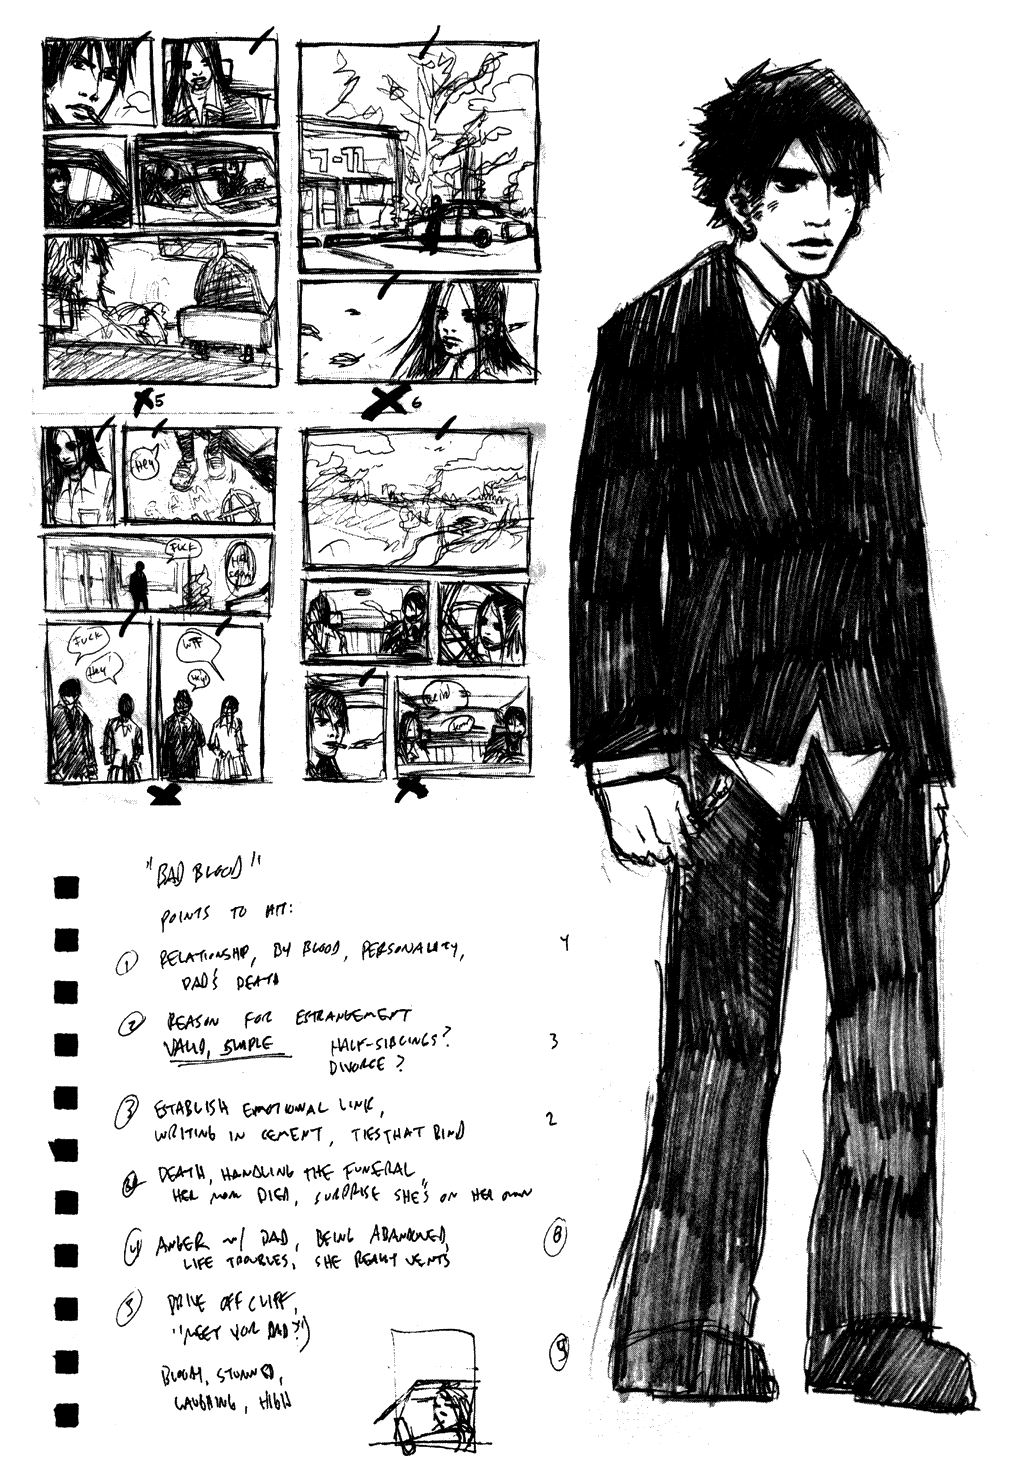 7-11
5
6
Hey
FUCK
FUCK
Hey!
WTF
Hey!
"BAD BLOOD"
POINTS TO HIT:
① RELATIONSHIP, BY BLOOD, PERSONALITY,
DAD'S DEATH
4
② REASON FOR ESTRANGEMENT
VALID, SIMPLE
HALF-SIBLINGS?
DIVORCE?
3
③ ESTABLISH EMOTIONAL LINK,
WRITING IN CEMENT, TIES THAT BIND
2
DEATH, HANDLING THE FUNERAL,
HER MOM DIED, SURPRISE SHE'S ON HER OWN
④ ANGER w/ DAD, BEING ABANDONED,
LIFE TROUBLES, SHE REALLY VENTS
⑧
⑤ DRIVE OFF CLIFF,
"MEET YOUR DAD?")
BLOODY, STUNNED,
LAUGHING, HIGH